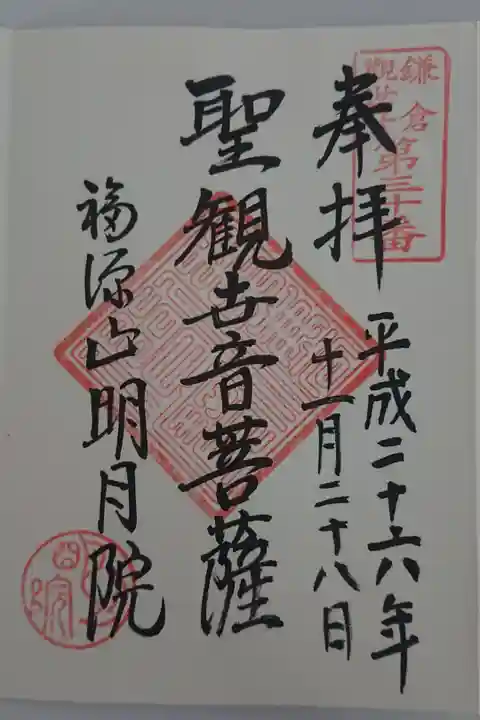 鎌倉
観世音
第三十番
奉拝
平成二十六年
十一月二十八日
聖観世音菩薩
福源山明月院